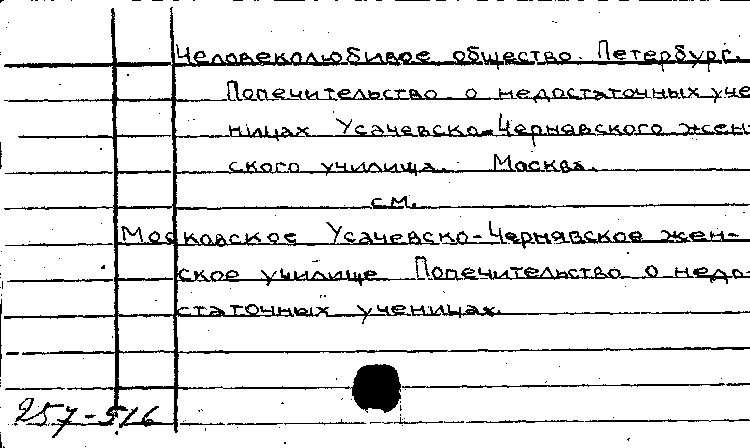 Человеколюбивое общество. Петербург.
Попечительство о недостаточных уче
ницах Усачевско-Чернявского жен
ского училища. Москва.
см.
Московское Усачевско-Чернявское жен-
ское училище Попечительство о недо-
статочных ученицах.
257-516